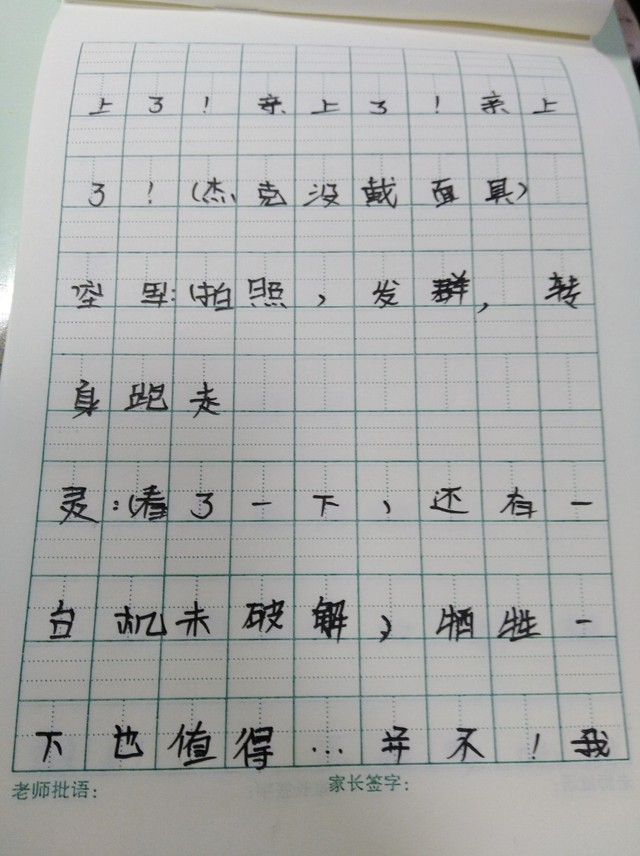 上了！亲上了！亲上
了！(杰克没戴面具)
空军:(拍照，发群，转
身跑走
灵:(看了一下，还有一
台机未破解，牺牲一
下也值得…并不！我
老师批语： 家长签字：